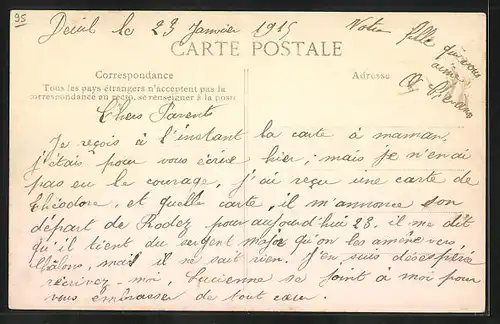 95
Deuil le 23 Janvier 1915
CARTE POSTALE
Correspondance
Tous les pays étrangers n'acceptent pas la
correspondance au recto, se renseigner à la poste
Adresse
Notre fille qui vous
aime
Chers Parents
Je reçois à l'instant la carte à maman,
j'étais pour vous écrire hier, mais je n'en ai
pas eu le courage, j'ai reçu une carte de
Théodore, et quelle carte, il m'annonce son
départ de Rodez pour aujourd'hui 23. il me dit
qu'il tient du sergent major qu'on les amène vers
Châlons, mais il ne sait rien. J'en suis désespérée
récrivez-moi, Lucienne se joint à moi pour
vous embrasser de tout cœur.